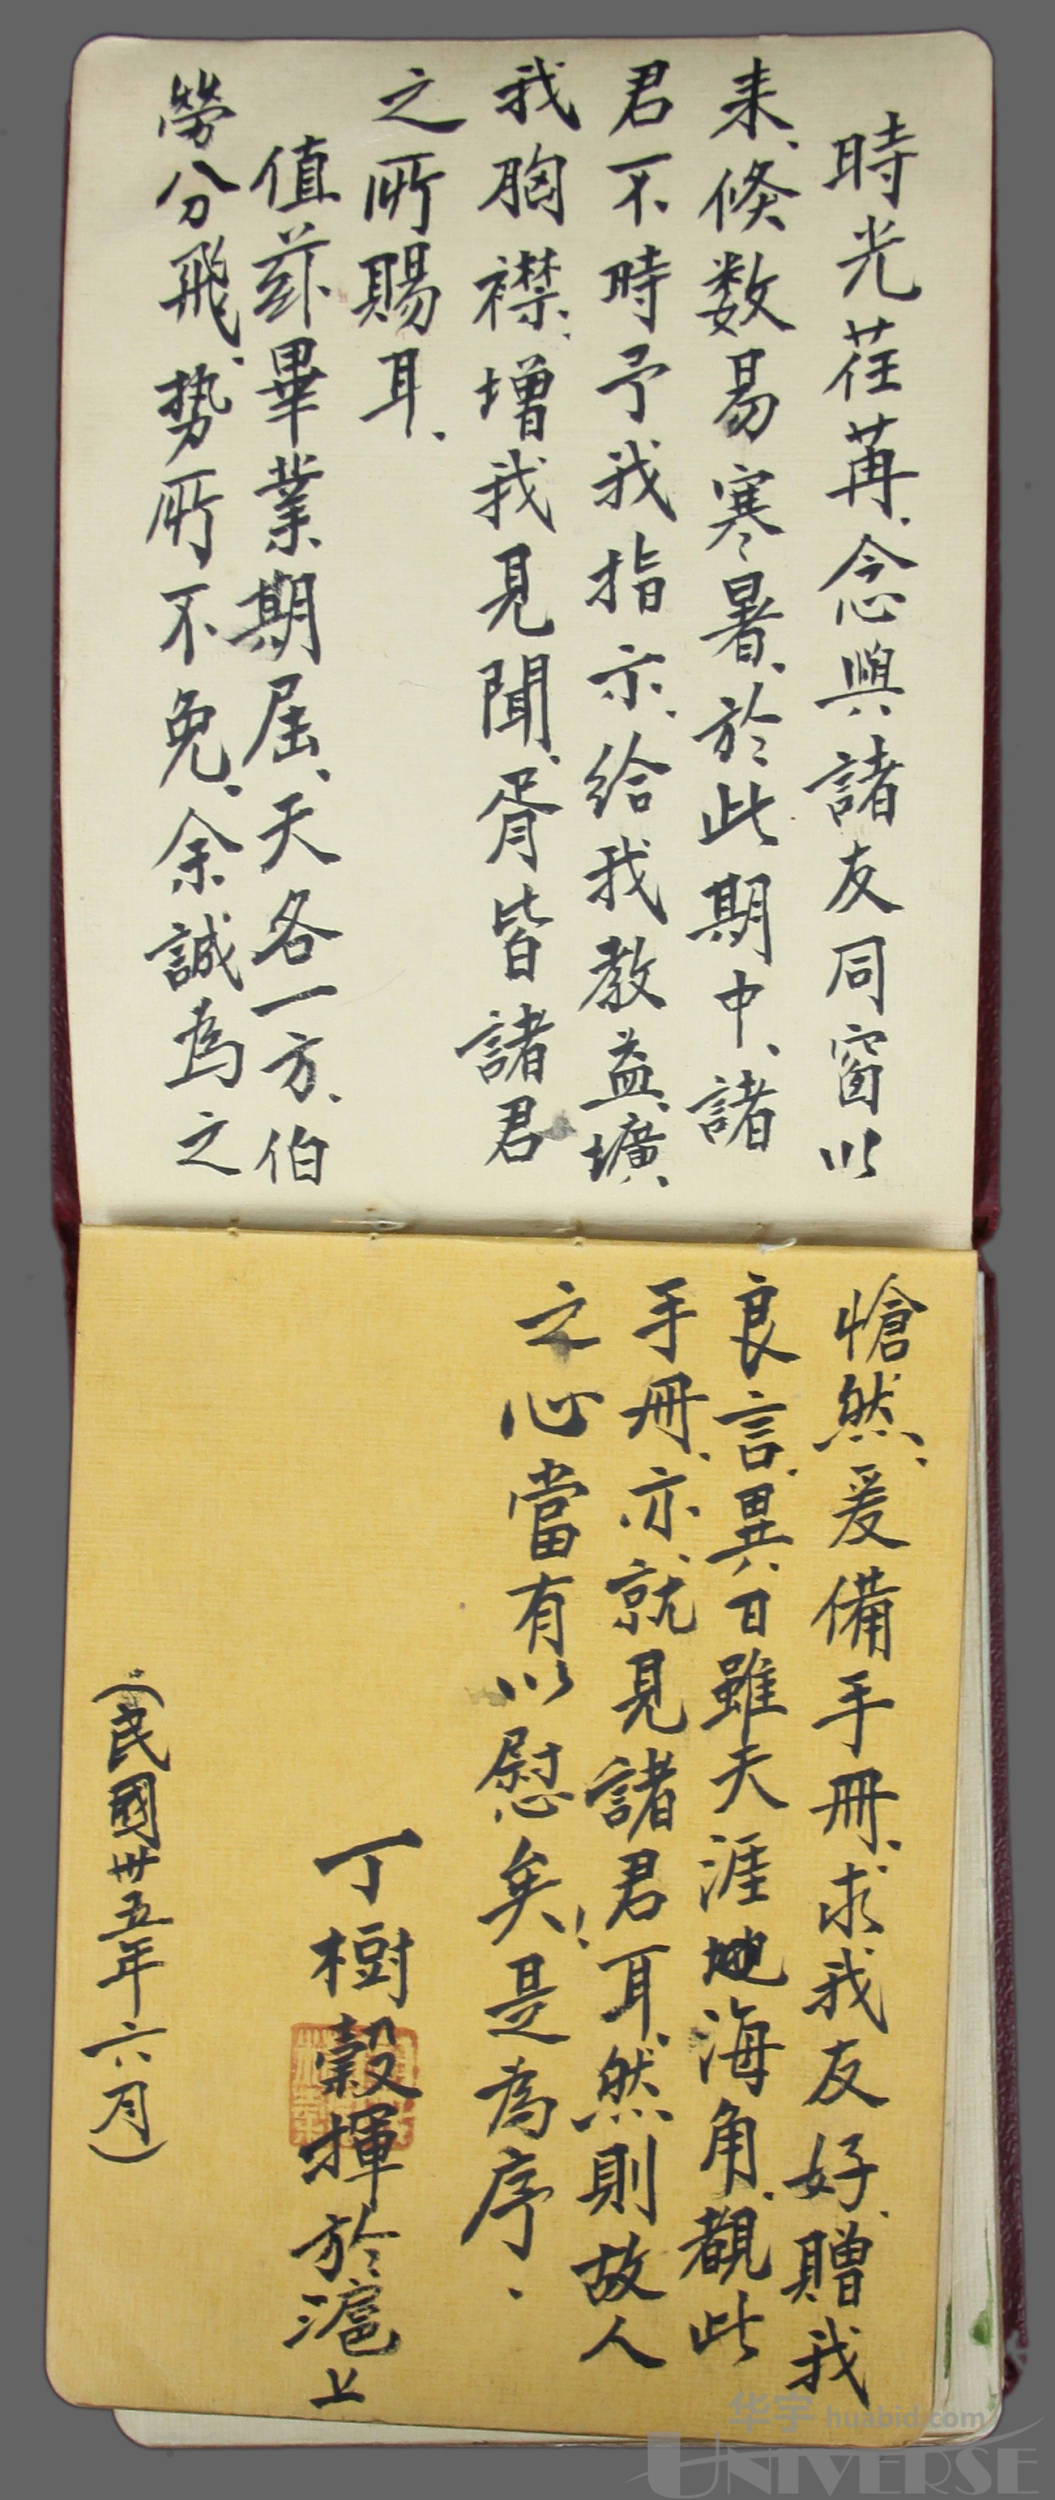 時光荏苒、念與諸友同窗以
来、倏数易寒暑、於此期中、諸
君不時予我指示、給我教益、壙
我胸襟、增我見聞、胥皆諸君
之所賜耳、
值茲畢業期屆、天各一方、伯
勞分飛、势所不免、余誠為之
愴然、爰備手冊、求我友好、贈我
良言、異日雖天涯地海角、覩此
手冊、亦就見諸君耳、然則故人
之心當有以慰矣！是為序、
丁樹穀揮於滬上
（民國卅五年六月）
华宇 huabid.com
UNIVERSE